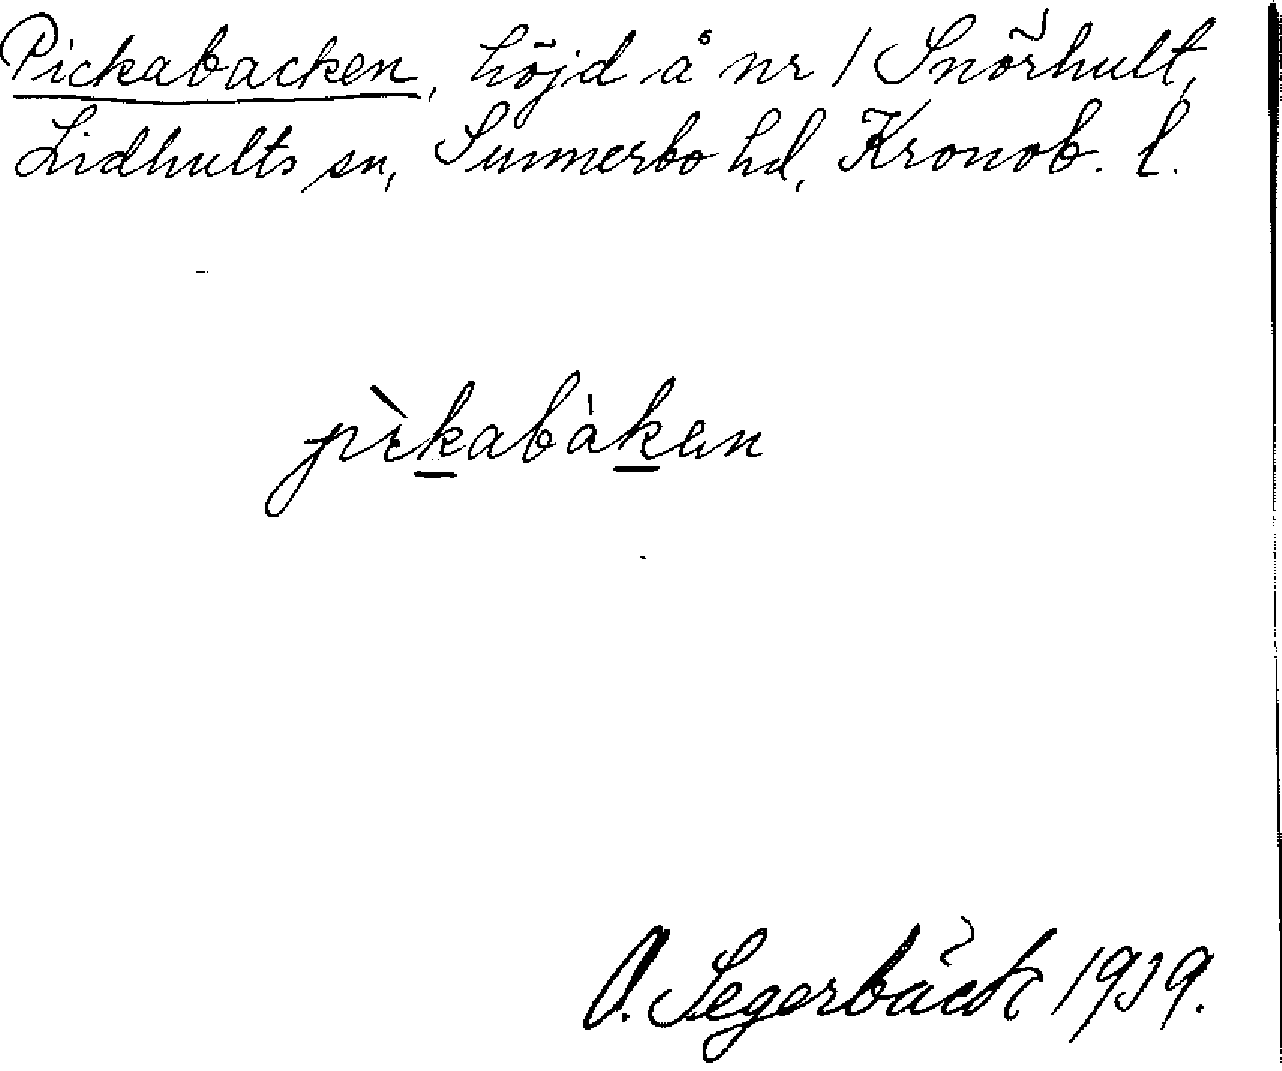 Pickabacken, höjd å nr 1 Snörhult,
Lidhults sn, Sunnerbo hd, Kronob. l.
pìkabàken
O. Segerbäck 1939.